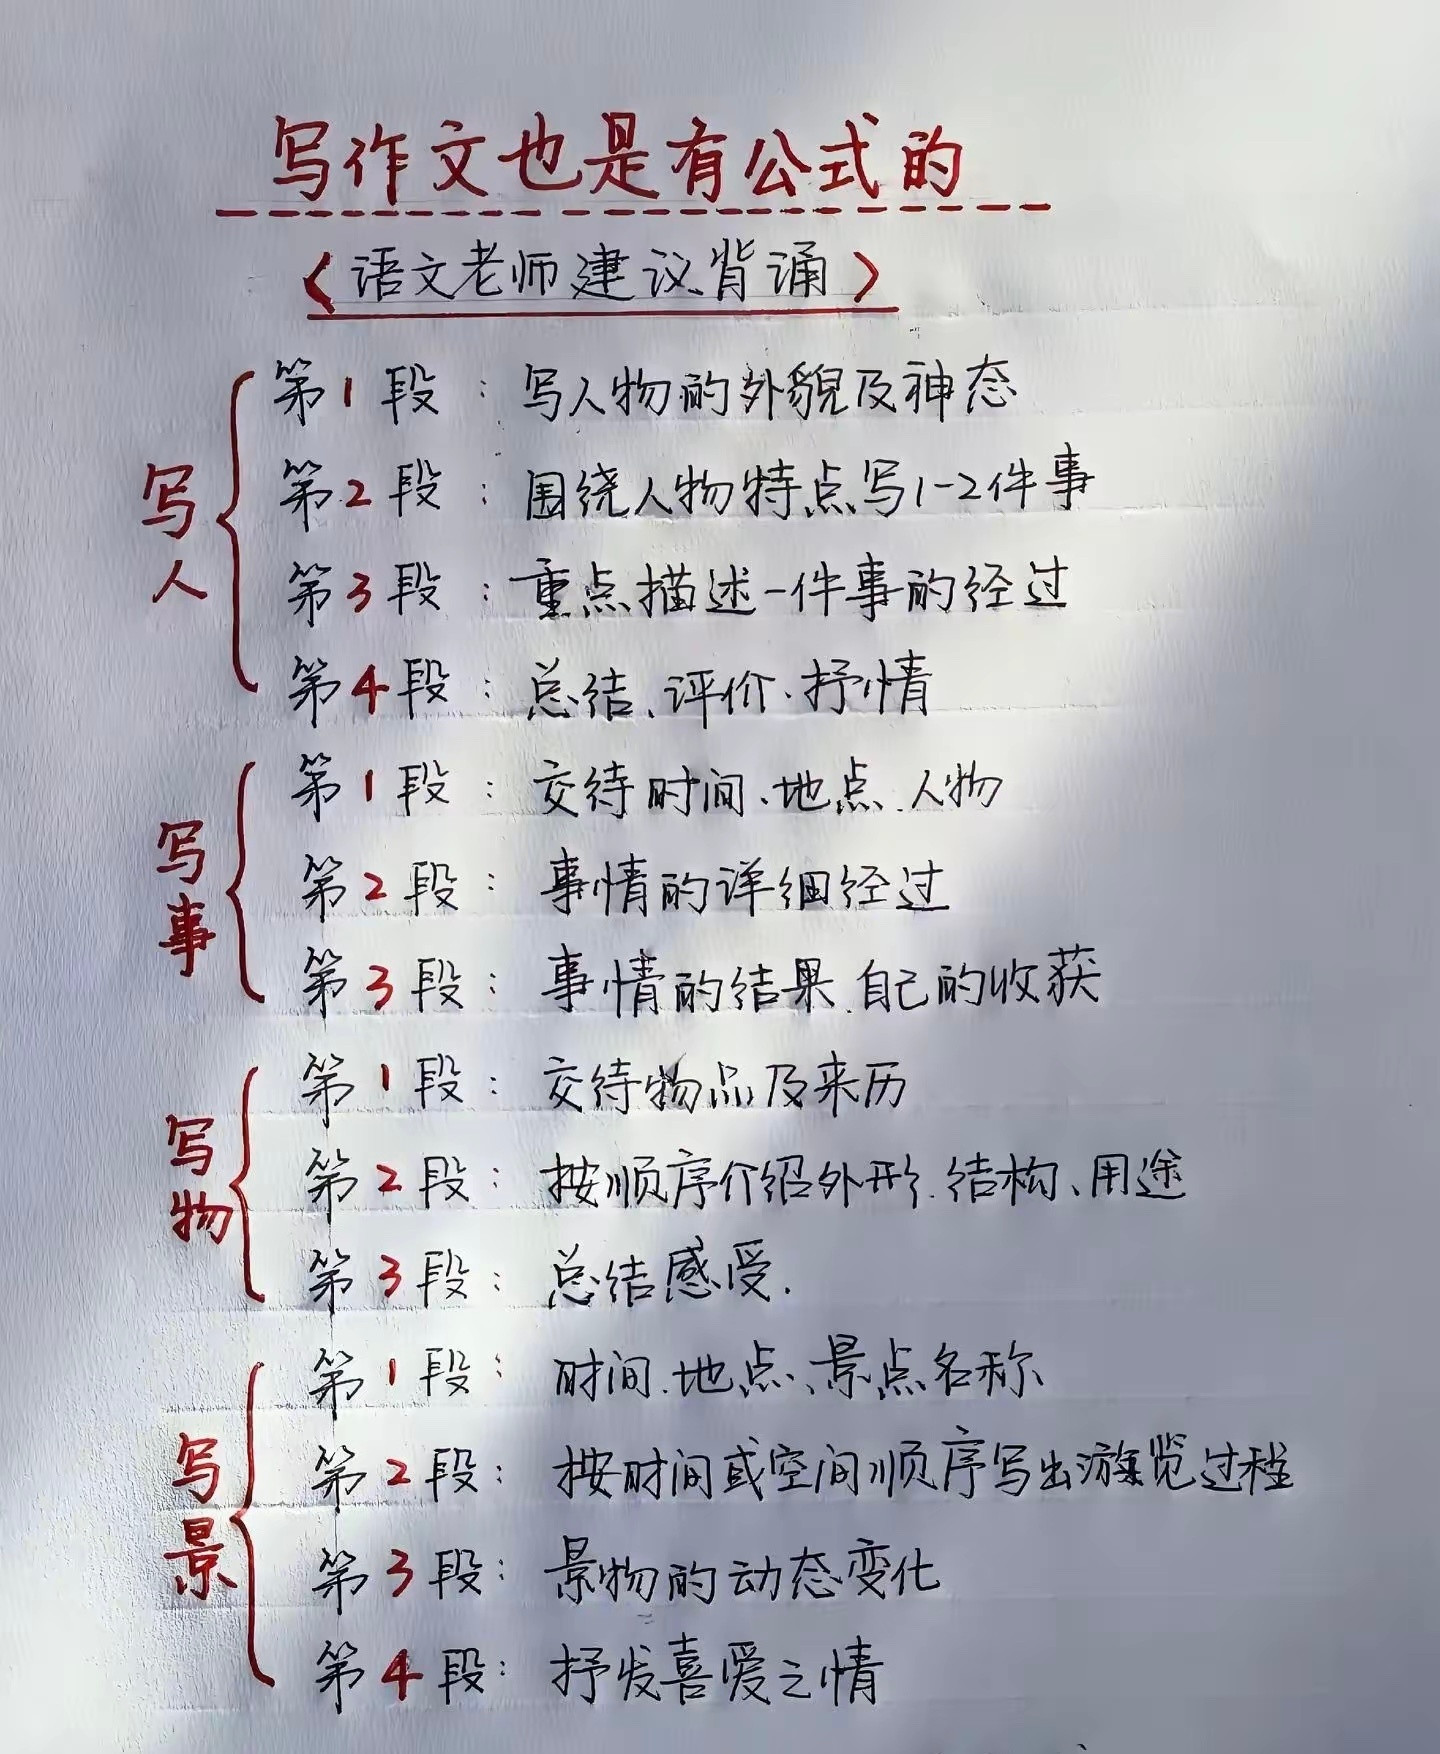 写作文也是有公式的
〈语文老师建议背诵〉
写人
第1段：写人物的外貌及神态
第2段：围绕人物特点写1-2件事
第3段：重点描述一件事的经过
第4段：总结、评价、抒情
写事
第1段：交待时间、地点、人物
第2段：事情的详细经过
第3段：事情的结果、自己的收获
写物
第1段：交待物品及来历
第2段：按顺序介绍外形、结构、用途
第3段：总结感受.
写景
第1段：时间、地点、景点名称
第2段：按时间或空间顺序写出游览过程
第3段：景物的动态变化
第4段：抒发喜爱之情